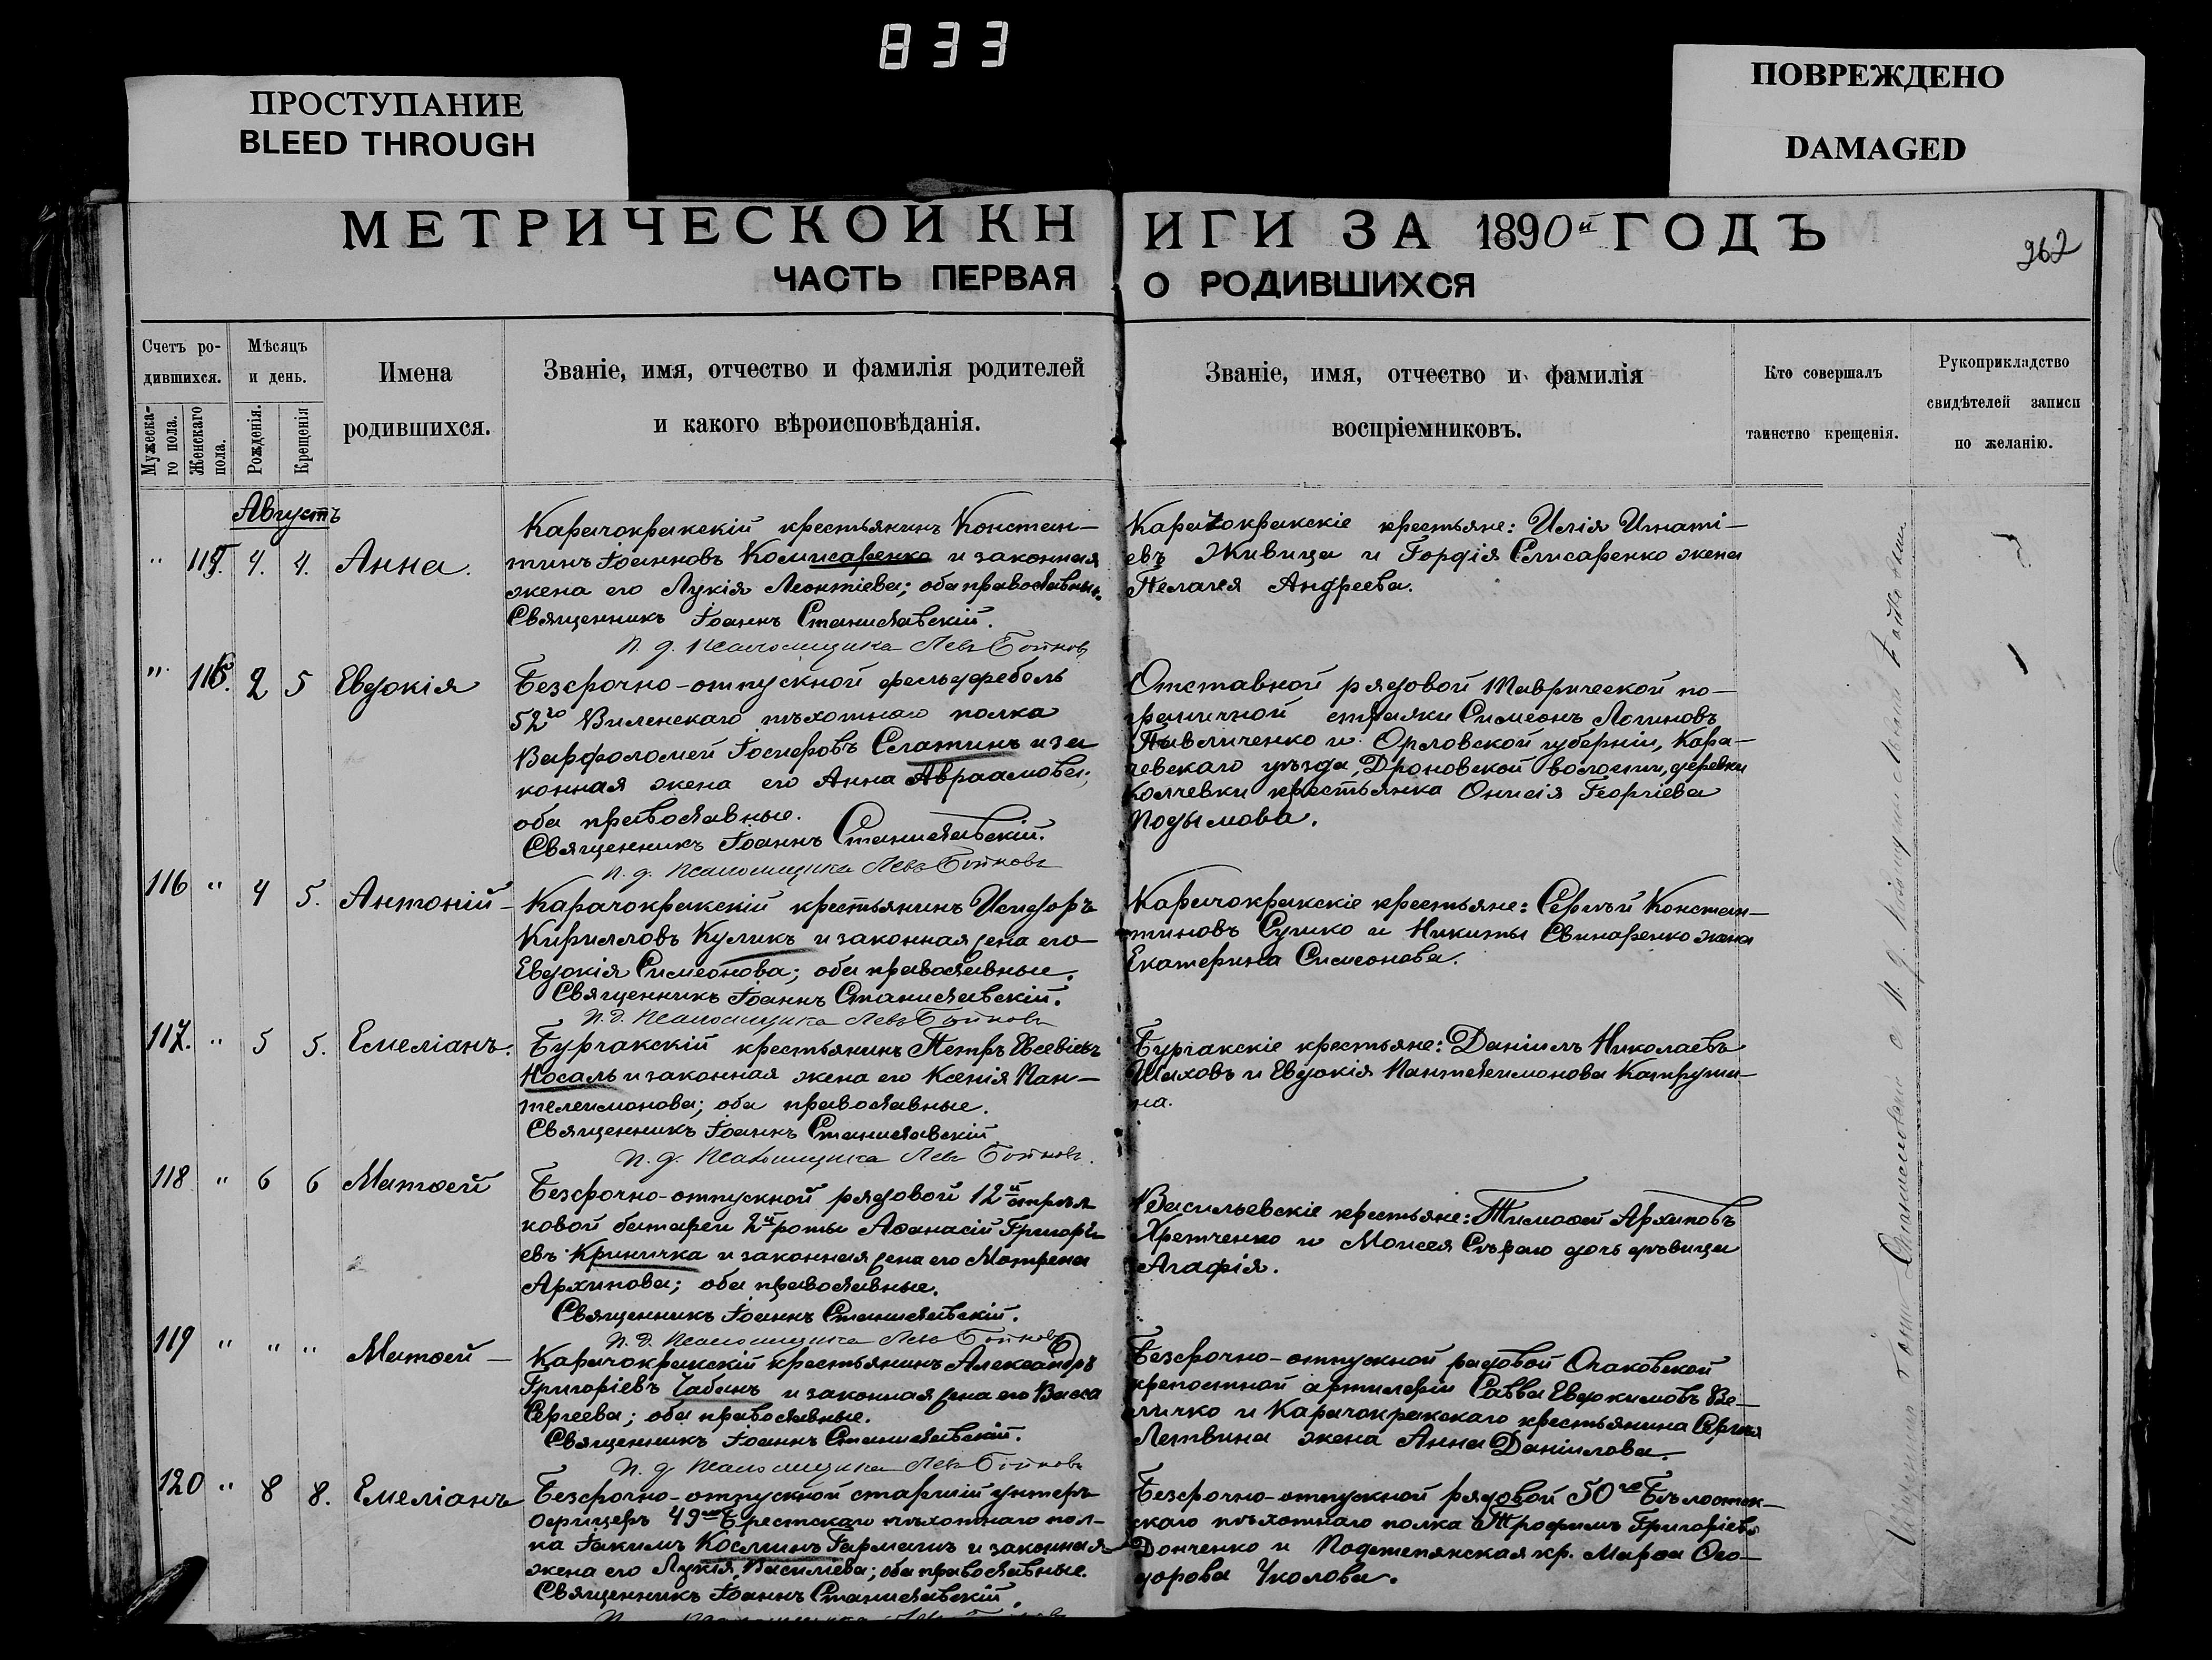 833
ПРОСТУПАНИЕ
BLEED THROUGH
ПОВРЕЖДЕНО
DAMAGED
МЕТРИЧЕСКОЙ КНИГИ ЗА 1890й ГОДЪ
262
ЧАСТЬ ПЕРВАЯ О РОДИВШИХСЯ
Счетъ ро-
дившихся.
Мужеска-
го пола.
Женскаго
пола.
Мѣсяцъ
и день.
Рожденія.
Крещенія
Имена
родившихся.
Званіе, имя, отчество и фамилія родителей
и какого вѣроисповѣданія.
Званіе, имя, отчество и фамилія
воспріемниковъ.
Кто совершалъ
таинство крещенія.
Рукоприкладство
свидѣтелей записи
по желанію.
Августъ
" 115. 4. 4. Анна.
Карачокракскій крестьянинъ Констан-
тинъ Іоанновъ Комисаренко и законная
жена его Лукія Леонтіева; оба православные.
Священникъ Іоаннъ Станиславскій.
И. д. псаломщика Левъ Бойковъ
Карачокракскіе крестьяне: Илія Игнаті-
евъ Живица и Гордія Слисаренко жена
Пелагея Андреева.
" 116. 2 5 Евдокія
Безсрочно-отпускной фельдфебель
52го Виленскаго пѣхотнаго полка
Варфоломей Іосифовъ Слатинъ и за
конная жена его Анна Авраамова;
оба православные.
Священникъ Іоаннъ Станиславскій.
И. д. псаломщика Левъ Бойковъ
Отставной рядовой Таврической по-
граничной стражи Симеонъ Логиновъ
Павличенко и Орловской губерніи, Кара-
чевскаго уѣзда, Дроновской волости, деревни
Колчевки крестьянка Онисія Георгіева
Подымова.
116 " 4 5. Антоній -
Карачокракскій крестьянинъ Исидоръ
Кирилловъ Куликъ и законная жена его
Евдокія Симеонова; оба православные.
Священникъ Іоаннъ Станиславскій.
И. д. псаломщика Левъ Бойковъ
Карачокракскіе крестьяне: Сергѣй Констан-
тиновъ Сушко и Никиты Свинаренко жена
Екатерина Симеонова.
117. " 5 5. Емеліанъ.
Бурчакскій крестьянинъ Петръ Евсевіевъ
Носаль и законная жена его Ксенія Пан-
телеимонова; оба православные.
Священникъ Іоаннъ Станиславскій
И. д. псаломщика Левъ Бойковъ.
Бурчакскіе крестьяне: Даніилъ Николаевъ
Шаховъ и Евдокія Пантелеимонова Катруши-
на.
118 " 6 6 Матѳей
Безсрочно-отпускной рядовой 12й стрѣл
ковой батареи 2й роты Аѳанасій Григорь
евъ Криничка и законная жена его Матрена
Архипова; оба православные.
Священникъ Іоаннъ Станиславскій.
И. д. псаломщика Левъ Бойковъ
Васильевскіе крестьяне: Тимоѳей Архиповъ
Хретченко и Моисея Сѣраго дочь дѣвица
Агафія.
119 " " " Матѳей -
Карачокракскій крестьянинъ Александръ
Григоріевъ Чабанъ и законная жена его Васса
Сергеева; оба православные.
Священникъ Іоаннъ Станиславскій.
И. д. псаломщика Левъ Бойковъ
Безсрочно-отпускной рядовой Очаковской
крепостной артилеріи Савва Евдокимовъ Ве-
личко и Карачокракскаго крестьянина Сергѣя
Летвина жена Анна Даніилова.
120 " 8 8. Емеліанъ
Безсрочно-отпускной старшій унтеръ
офицеръ 49го Брестскаго пѣхотнаго пол-
ка Іакимъ Косминъ Гармашъ и законная
жена его Лукія Василіева; оба православные.
Священникъ Іоаннъ Станиславскій.
Безсрочно-отпускной рядовой 50го Бѣлосток-
скаго пѣхотнаго полка Трофимъ Григоріевъ
Донченко и Подстепянская кр. Марѳа Ѳео-
дорова Уколова.
Священникъ Іоаннъ Станиславскій с И. д. псаломщика Левомъ Бойковымъ